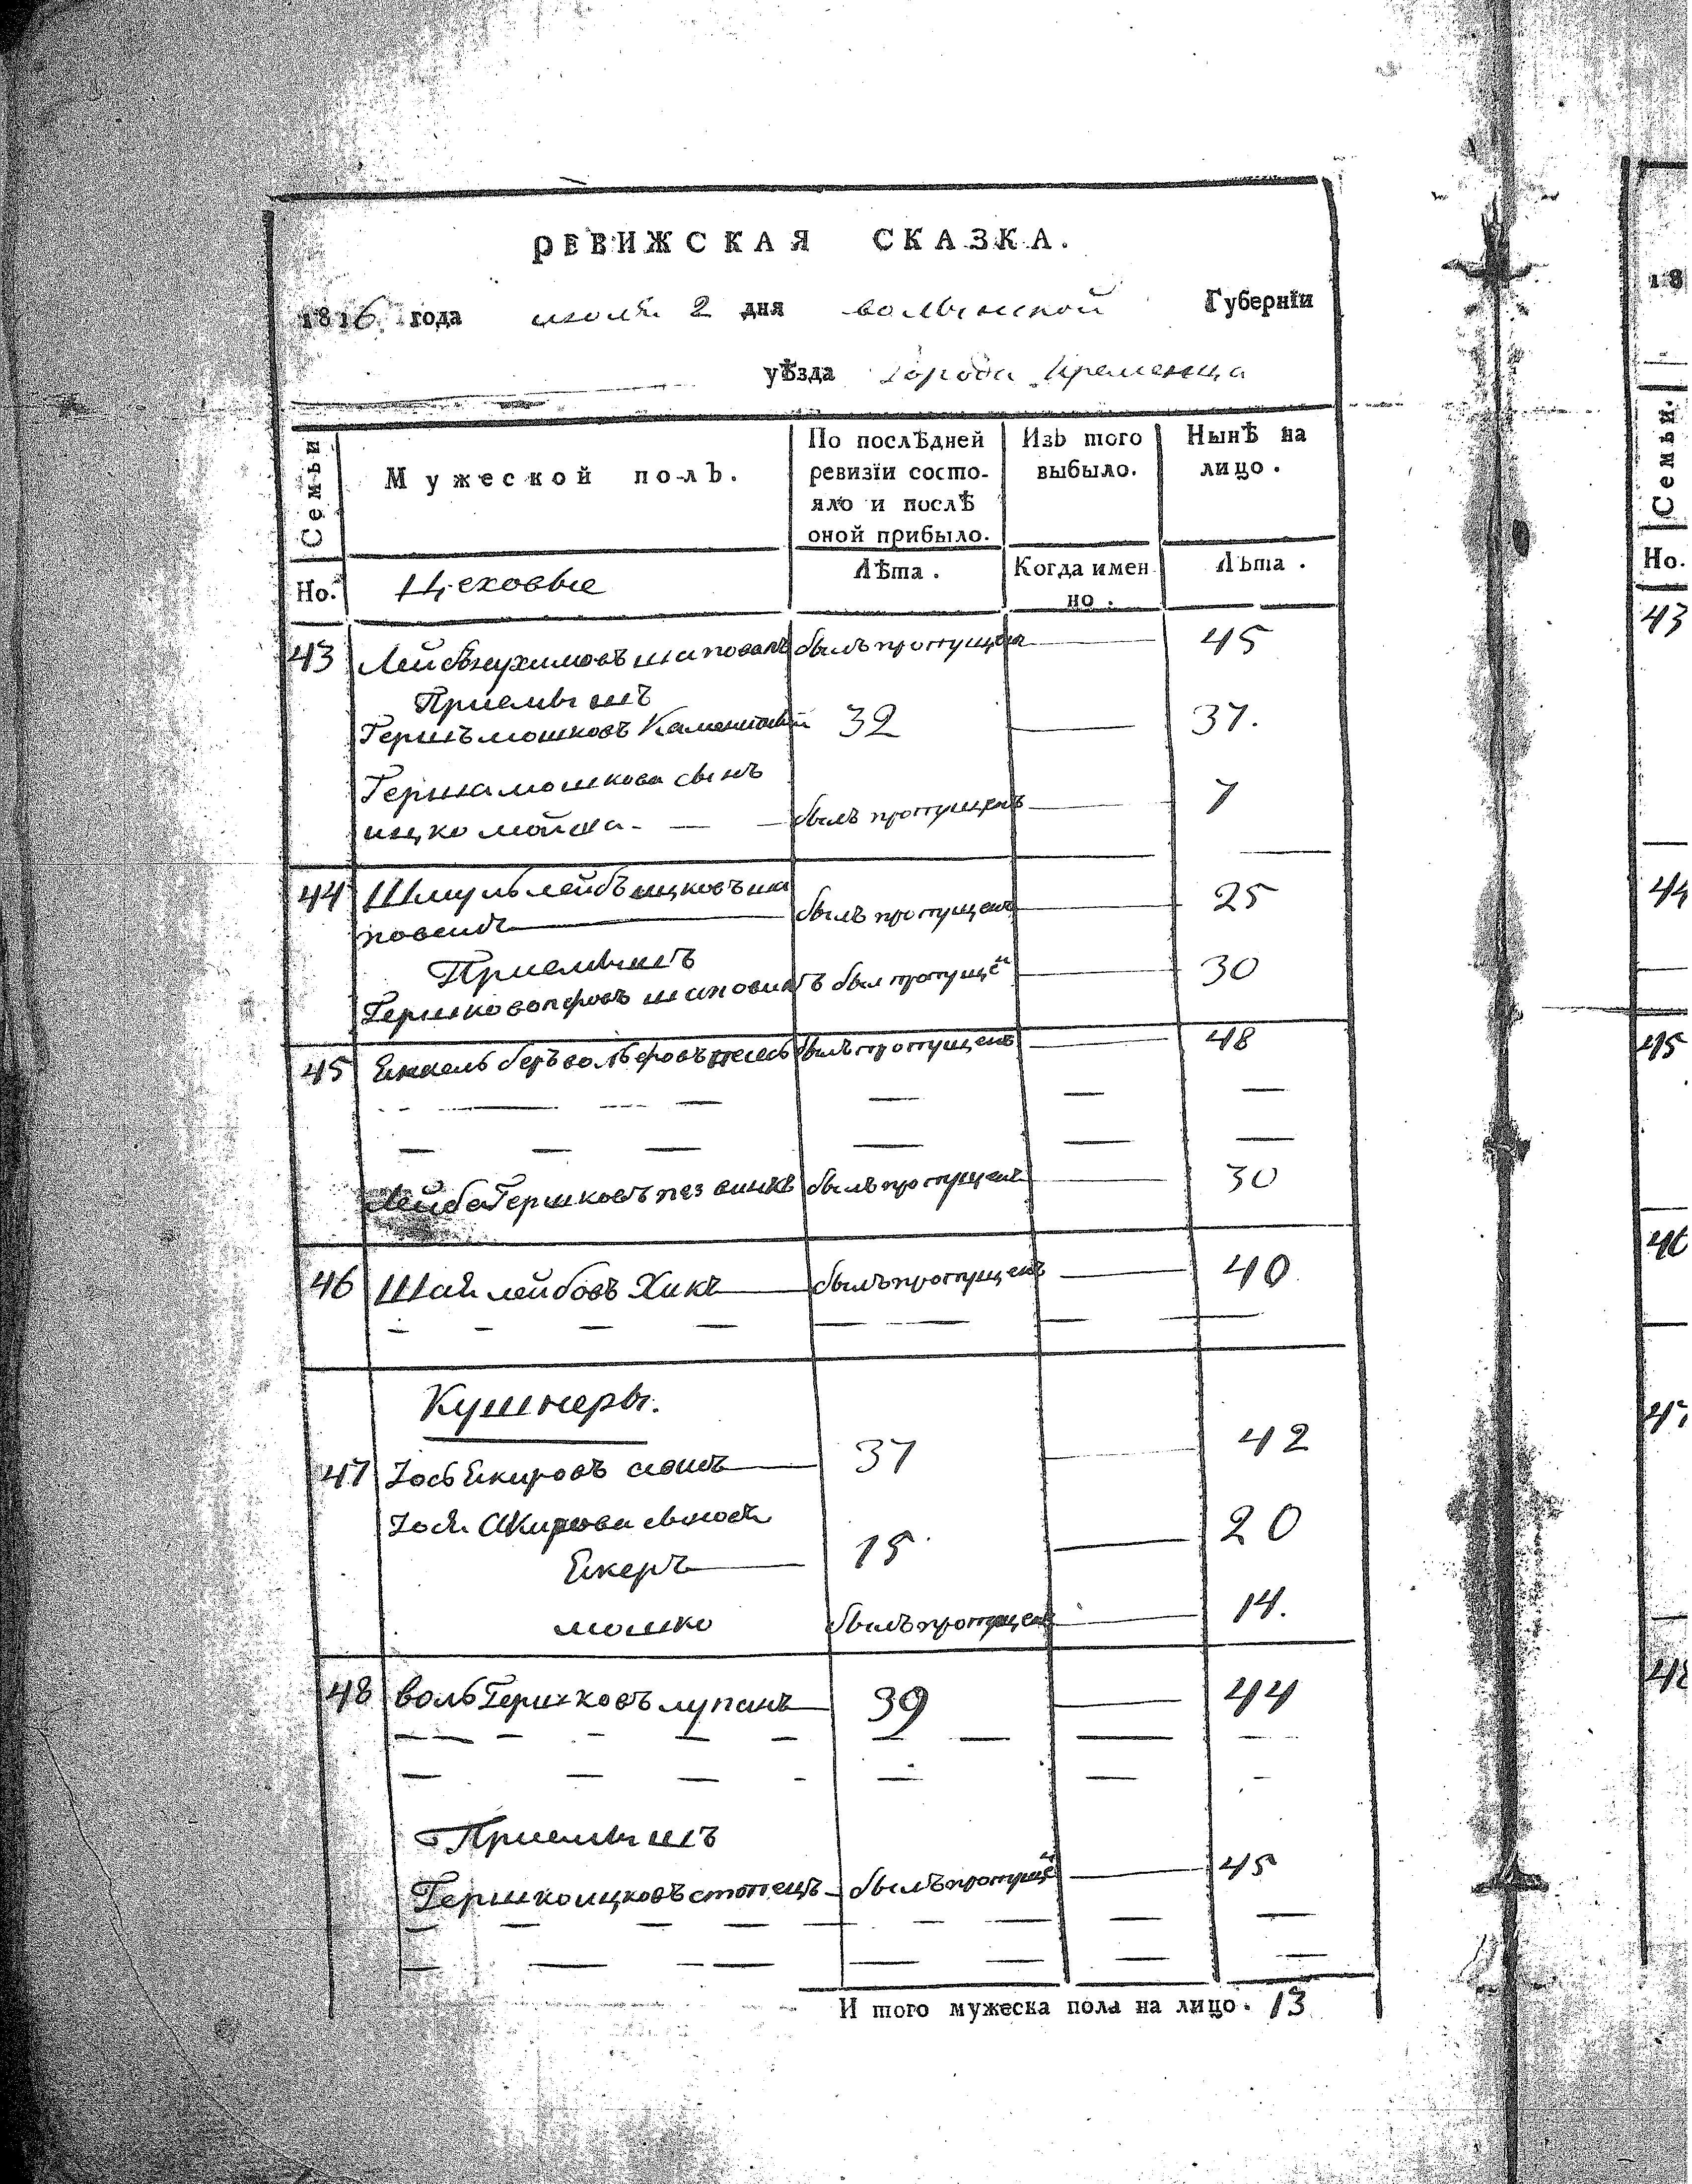 РЕВИЖСКАЯ СКАЗКА.
1816. года июля 2 дня волынской Губернїи
уѣзда города Кременца
Семьи
Мужеской полъ.
По послѣдней ревизїи состо-
яло и послѣ
оной прибыло.
Изъ того
выбыло.
Нынѣ на
лицо.
Но. Цеховые
Лѣта.
Когда имен
но.
Лѣта.
43 Лейбнухимовъ шаповалъ былъ пропущен 45
Приемышъ
Гершъ мошковъ 32 37.
Герша мошкова сынъ
ицко мойша. былъ пропущенъ 7
44 Шмуль лейбъ ицковъ ша
былъ пропущенъ 25
Приемышъ
Гершко был пропущё 30
45 беръ былъ пропущенъ 48
Лейба Гершковъ былъ пропущенъ 30
46 Шая лейбовъ Хикъ былъ пропущенъ 40
Кушнеры.
47 Іось Екировъ 37 42
Іося
Екеръ 15 20
мошко былъ пропущенъ 14.
48 воль Гершковъ лупанъ 39 44
Приемышъ
Гершко ицковъ былъ пропущё 45
И того мужеска пола на лицо. 13
18
Семьи.
Но.
43
44
45
46
47
48